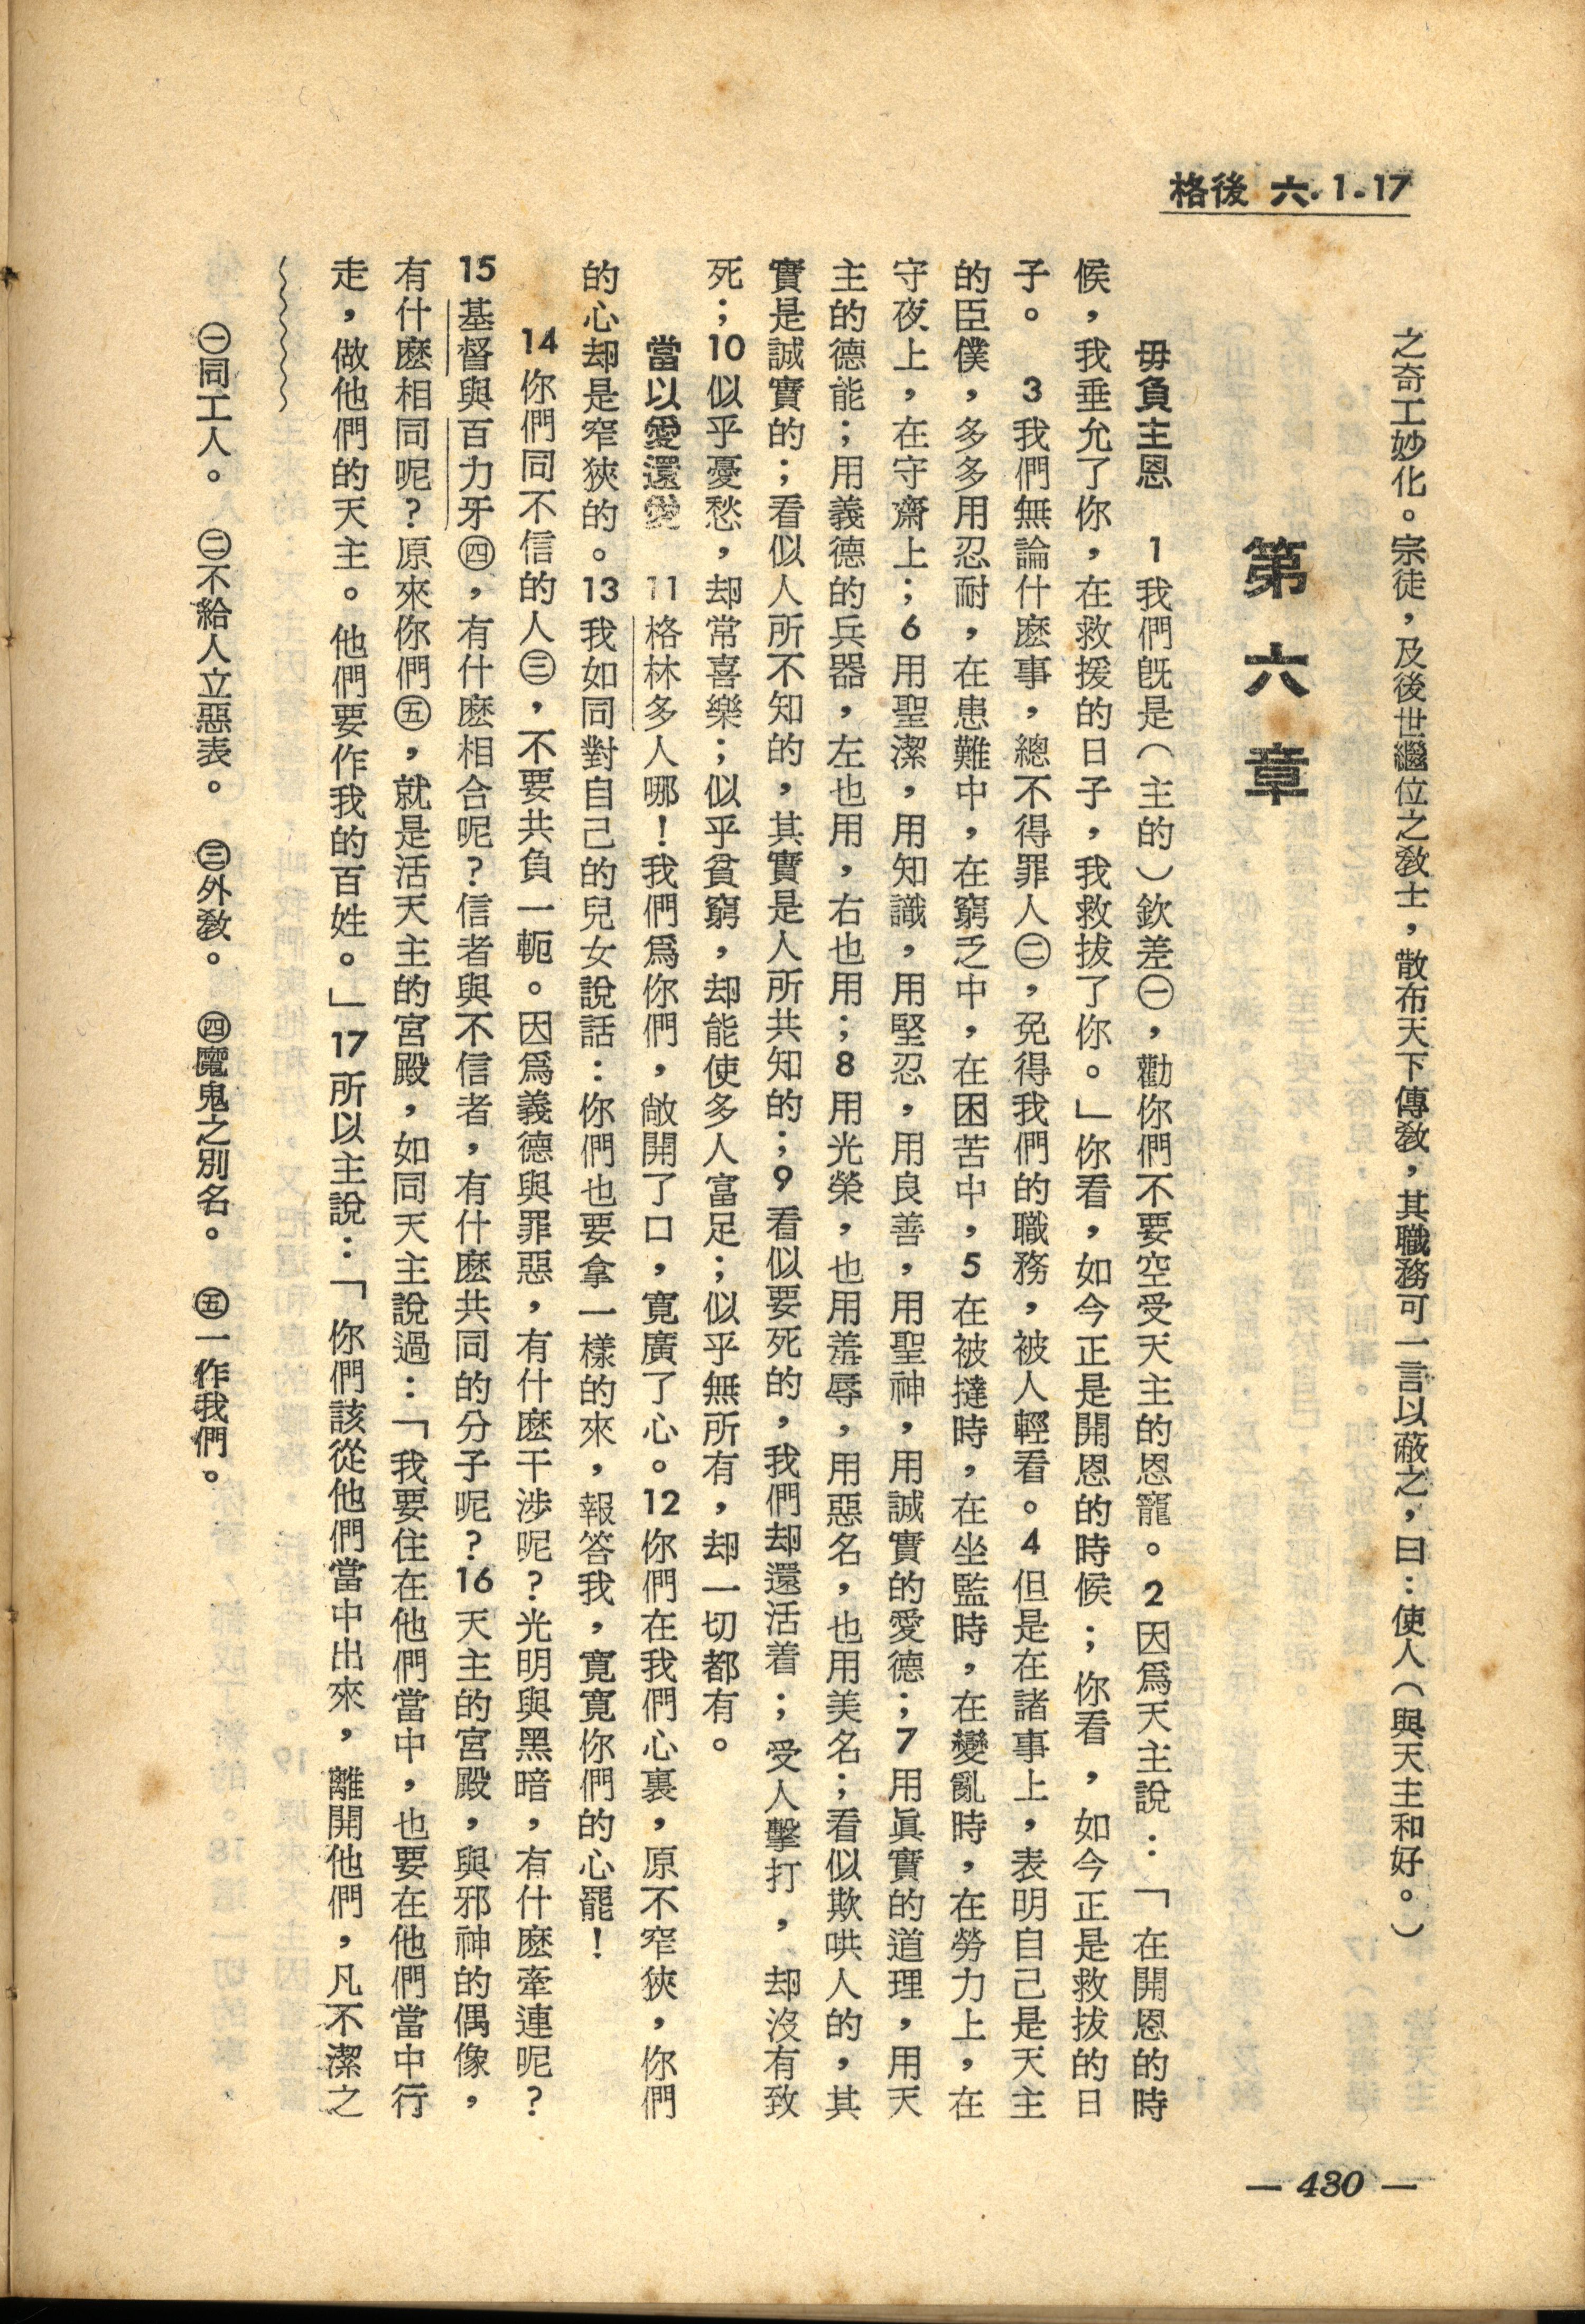 格後 六. 1-17
之奇工妙化。宗徒，及後世繼位之教士，散布天下傳教，其職務可一言以蔽之，曰：使人（與天主和好。）
第六章
毋負主恩　1我們旣是（主的）欽差㊀，勸你們不要空受天主的恩寵。2因爲天主說：「在開恩的時
候，我垂允了你，在救援的日子，我救拔了你。」你看，如今正是開恩的時候；你看，如今正是救拔的日
子。　3我們無論什麽事，總不得罪人㊁，免得我們的職務，被人輕看。4但是在諸事上，表明自己是天主
的臣僕，多多用忍耐，在患難中，在窮乏中，在困苦中，5在被撻時，在坐監時，在變亂時，在勞力上，在
守夜上，在守齋上；6用聖潔，用知識，用堅忍，用良善，用聖神，用誠實的愛德；7用眞實的道理，用天
主的德能；用義德的兵器，左也用，右也用；8用光榮，也用羞辱，用惡名，也用美名；看似欺哄人的，其
實是誠實的；看似人所不知的，其實是人所共知的；9看似要死的，我們却還活着；受人擊打，却沒有致
死；10似乎憂愁，却常喜樂；似乎貧窮，却能使多人富足；似乎無所有，却一切都有。
當以愛還愛　11格林多人哪！我們爲你們，敞開了口，寬廣了心。12你們在我們心裏，原不窄狹，你們
的心却是窄狹的。13我如同對自己的兒女說話：你們也要拿一樣的來，報答我，寬寬你們的心罷！
14你們同不信的人㊂，不要共負一軛。因爲義德與罪惡，有什麽干涉呢？光明與黑暗，有什麽牽連呢？
15基督與百力牙㊃，有什麽相合呢？信者與不信者，有什麽共同的分子呢？16天主的宮殿，與邪神的偶像，
有什麽相同呢？原來你們㊄，就是活天主的宮殿，如同天主說過：「我要住在他們當中，也要在他們當中行
走，做他們的天主。他們要作我的百姓。」17所以主說：「你們該從他們當中出來，離開他們，凡不潔之
㊀同工人。　㊁不給人立惡表。　㊂外教。　㊃魔鬼之別名。　㊄一作我們。
— 430 —